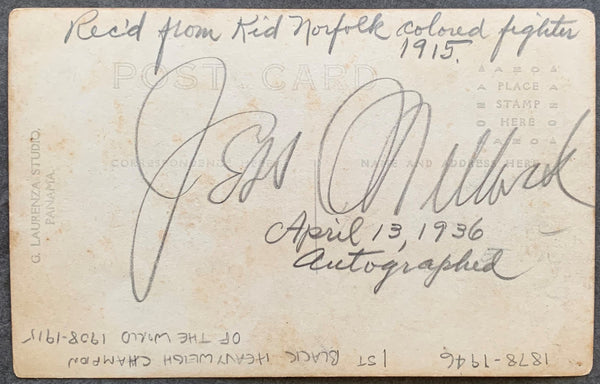 Rec'd from Kid Norfolk colored fighter
1915.
POST CARD
AZO
PLACE
STAMP
HERE
AZO
CORRESPONDENCE HERE
NAME AND ADDRESS HERE
Jess Willard
April 13, 1936
Autographed
G. LAURENZA STUDIO,
PANAMA.
1878-1946
1ST BLACK HEAVYWEIGH CHAMPION
OF THE WORLD 1908-1915